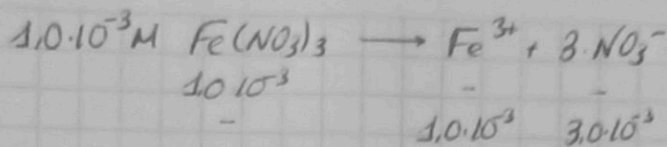 1,0·10⁻³M Fe(NO₃)₃ → Fe³⁺ + 3·NO₃⁻
1,0 10⁻³ - -
- 1,0·10⁻³ 3,0·10⁻³